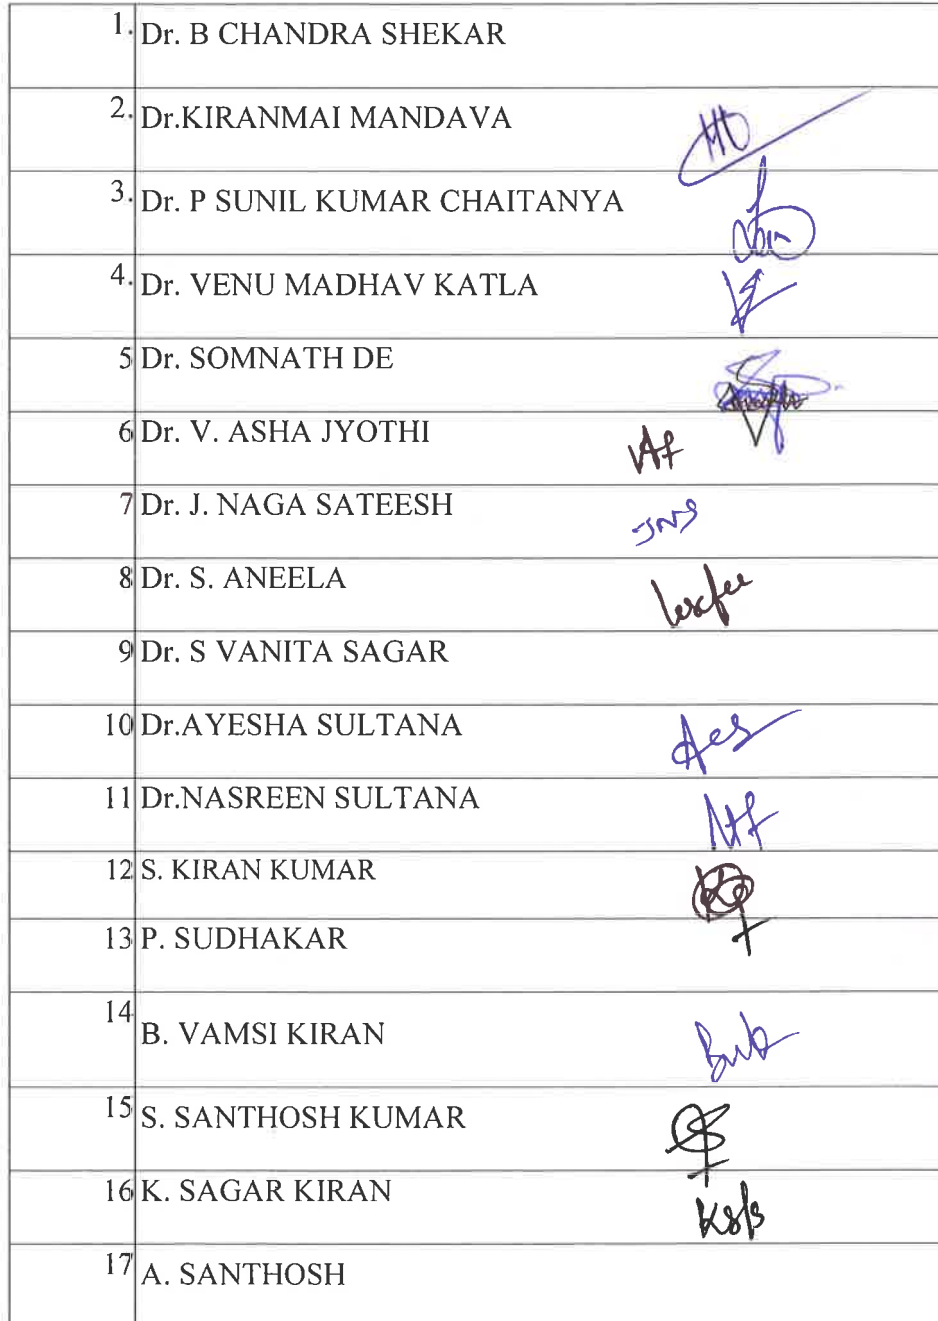 1. Dr. B CHANDRA SHEKAR
2. Dr.KIRANMAI MANDAVA
3. Dr. P SUNIL KUMAR CHAITANYA
4. Dr. VENU MADHAV KATLA
5 Dr. SOMNATH DE
6 Dr. V. ASHA JYOTHI
7 Dr. J. NAGA SATEESH JNS
8 Dr. S. ANEELA
9 Dr. S VANITA SAGAR
10 Dr.AYESHA SULTANA
11 Dr.NASREEN SULTANA
12 S. KIRAN KUMAR
13 P. SUDHAKAR
14 B. VAMSI KIRAN
15 S. SANTHOSH KUMAR
16 K. SAGAR KIRAN
17 A. SANTHOSH